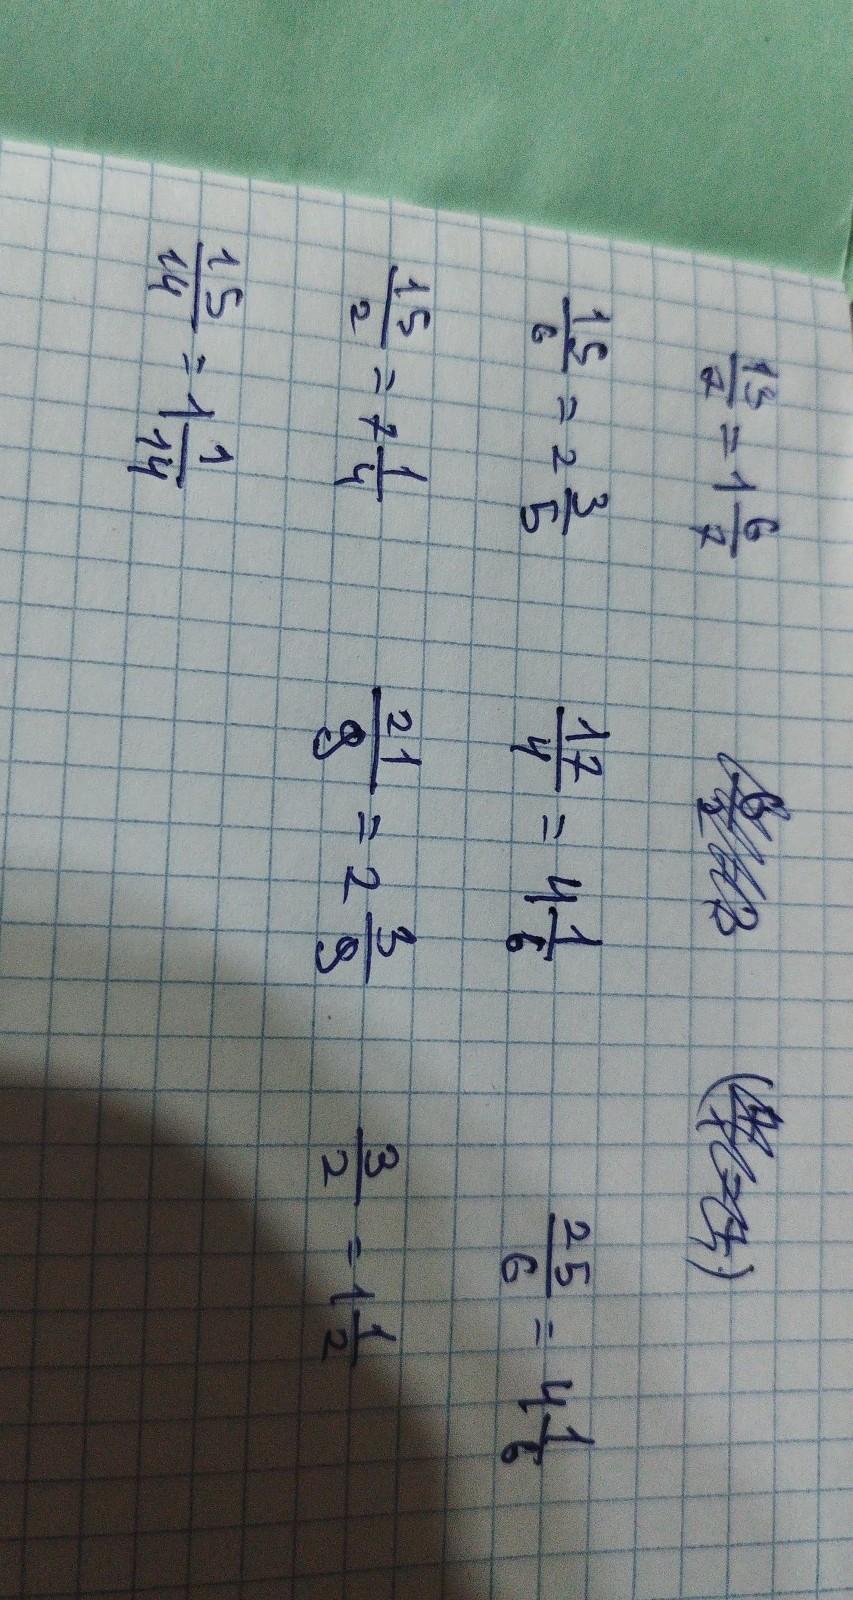 13/7 = 1 6/7
15/6 = 2 3/5 17/4 = 4 1/6 25/6 = 4 1/6
15/2 = 7 1/4 21/9 = 2 3/9 3/2 = 1 1/2
15/14 = 1 1/14